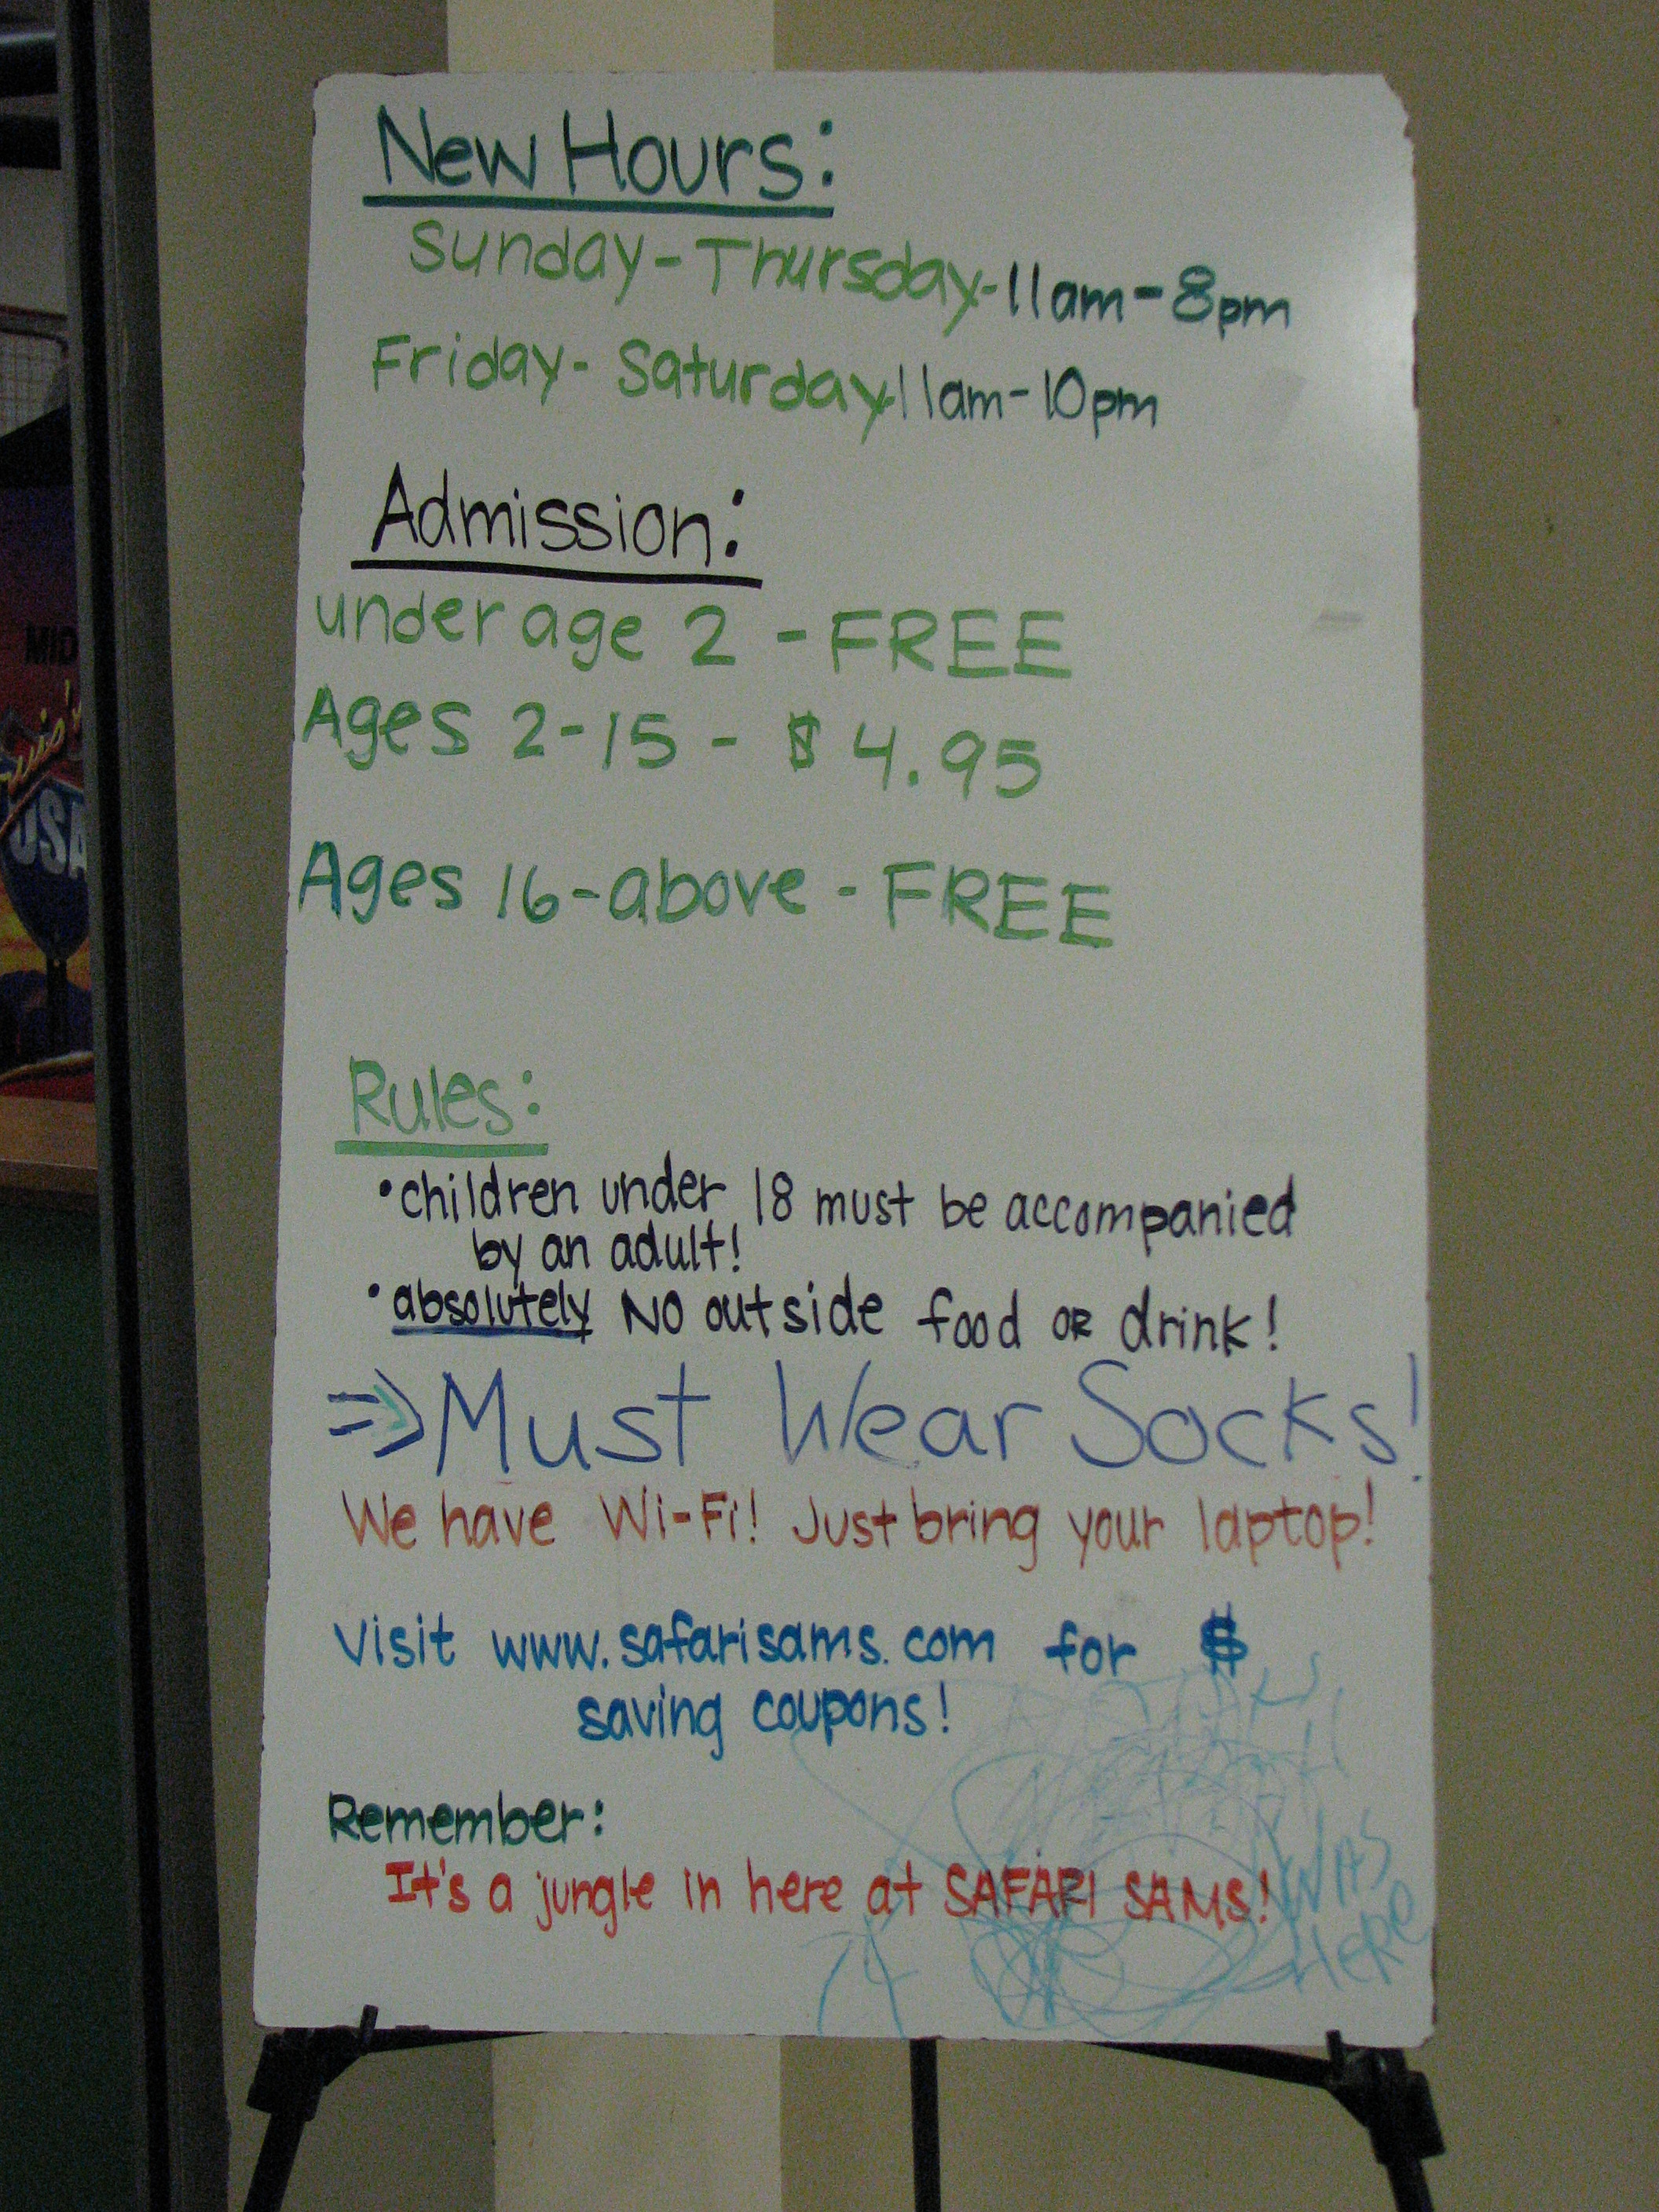 New Hours:
Sunday-Thursday-11am-8pm
Friday-Saturday 11am-10pm
Admission:
under age 2 - FREE
Ages 2-15 - $ 4.95
Ages 16-above - FREE
Rules:
•children under 18 must be accompanied
by an adult!
•absolutely NO outside food OR drink!
⇒Must Wear Socks!
We have Wi-Fi! Just bring your laptop!
Visit www.safarisams.com for $
saving coupons!
Remember:
It's a jungle in here at SAFARI SAMS!
WAS
HERE
MID
USA